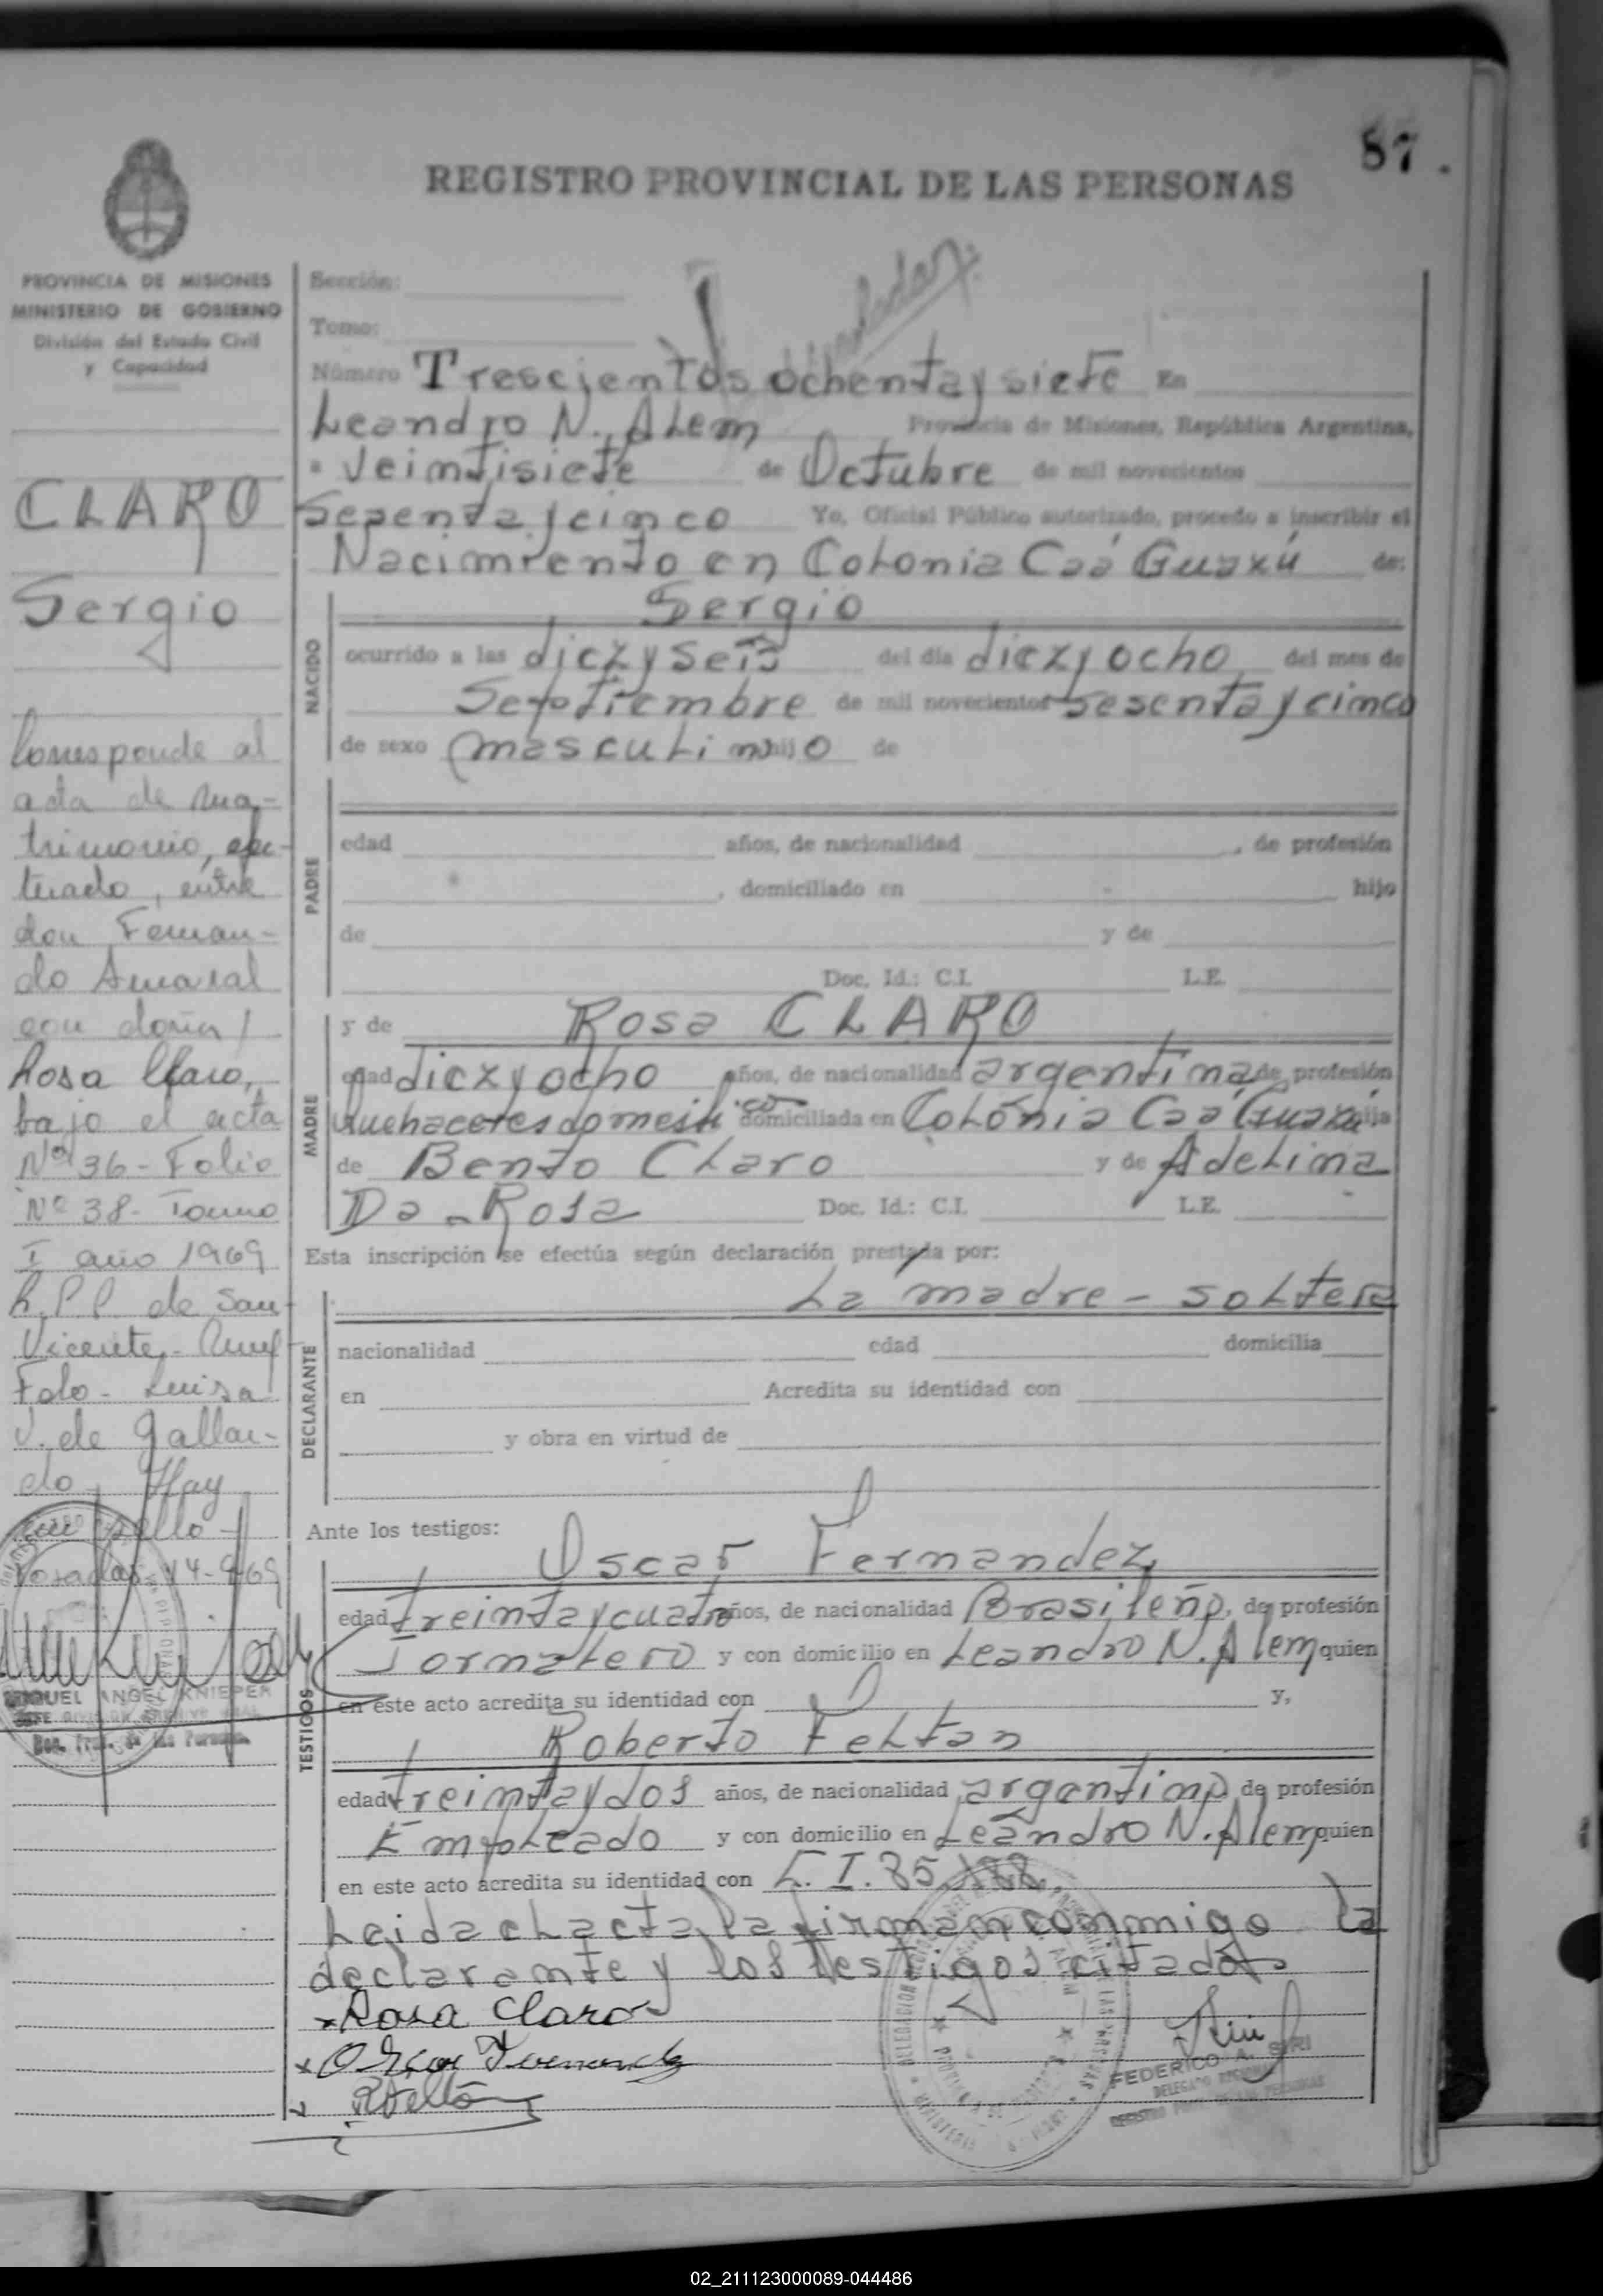 87.
REGISTRO PROVINCIAL DE LAS PERSONAS
PROVINCIA DE MISIONES
MINISTERIO DE GOBIERNO
División del Estado Civil
y Capacidad
CLARO
Sergio
Corresponde al
acta de ma-
trimonio, efec-
tuado, entre
don Fernan-
do Amaral
con doña
Rosa Claro,
bajo el acta
Nº 36- Folio
Nº 38- Tomo
I año 1969
R.P.P de San
Vicente-
Fdo- Luisa
V. de Gallar-
do Hay
un sello-
Posadas, 14-9-69
MIGUEL ANGEL KNIEPER
Sección:
Tomo:
Número Trescientos ochenta y siete En
Leandro N. Alem Provincia de Misiones, República Argentina,
a Veintisiete de Octubre de mil novecientos
Sesenta y cinco Yo, Oficial Público autorizado, procedo a inscribir el
Nacimiento en Colonia Caá Guazú de:
NACIDO
Sergio
ocurrido a las diez y seis del día diez y ocho del mes de
Septiembre de mil novecientos sesenta y cinco
de sexo masculino hijo de
PADRE
edad años, de nacionalidad , de profesión
, domiciliado en hijo
de y de
Doc. Id.: C.I. L.E.
MADRE
y de Rosa CLARO
edad diez y ocho años, de nacionalidad argentina de profesión
Quehaceres domesticos domiciliada en Colonia Caá Guazú hija
de Bento Claro y de Adelina
Da Rosa Doc. Id.: C.I. L.E.
Esta inscripción se efectúa según declaración prestada por:
DECLARANTE
La madre - soltera
nacionalidad edad domicilia
en Acredita su identidad con
y obra en virtud de
Ante los testigos:
TESTIGOS
Oscar Fernandez
edad treinta y cuatro años, de nacionalidad Brasileño, de profesión
Jornalero y con domicilio en Leandro N. Alem quien
en este acto acredita su identidad con y,
Roberto Feltan
edad treinta y dos años, de nacionalidad argentino de profesión
Empleado y con domicilio en Leandro N. Alem quien
en este acto acredita su identidad con
Leida el acta, la firman conmigo la
declarante y los testigos citados
x Rosa Claro
x Oscar Fernandez
FEDERICO A. SIRI
DELEGADO REGIONAL
02_211123000089-044486